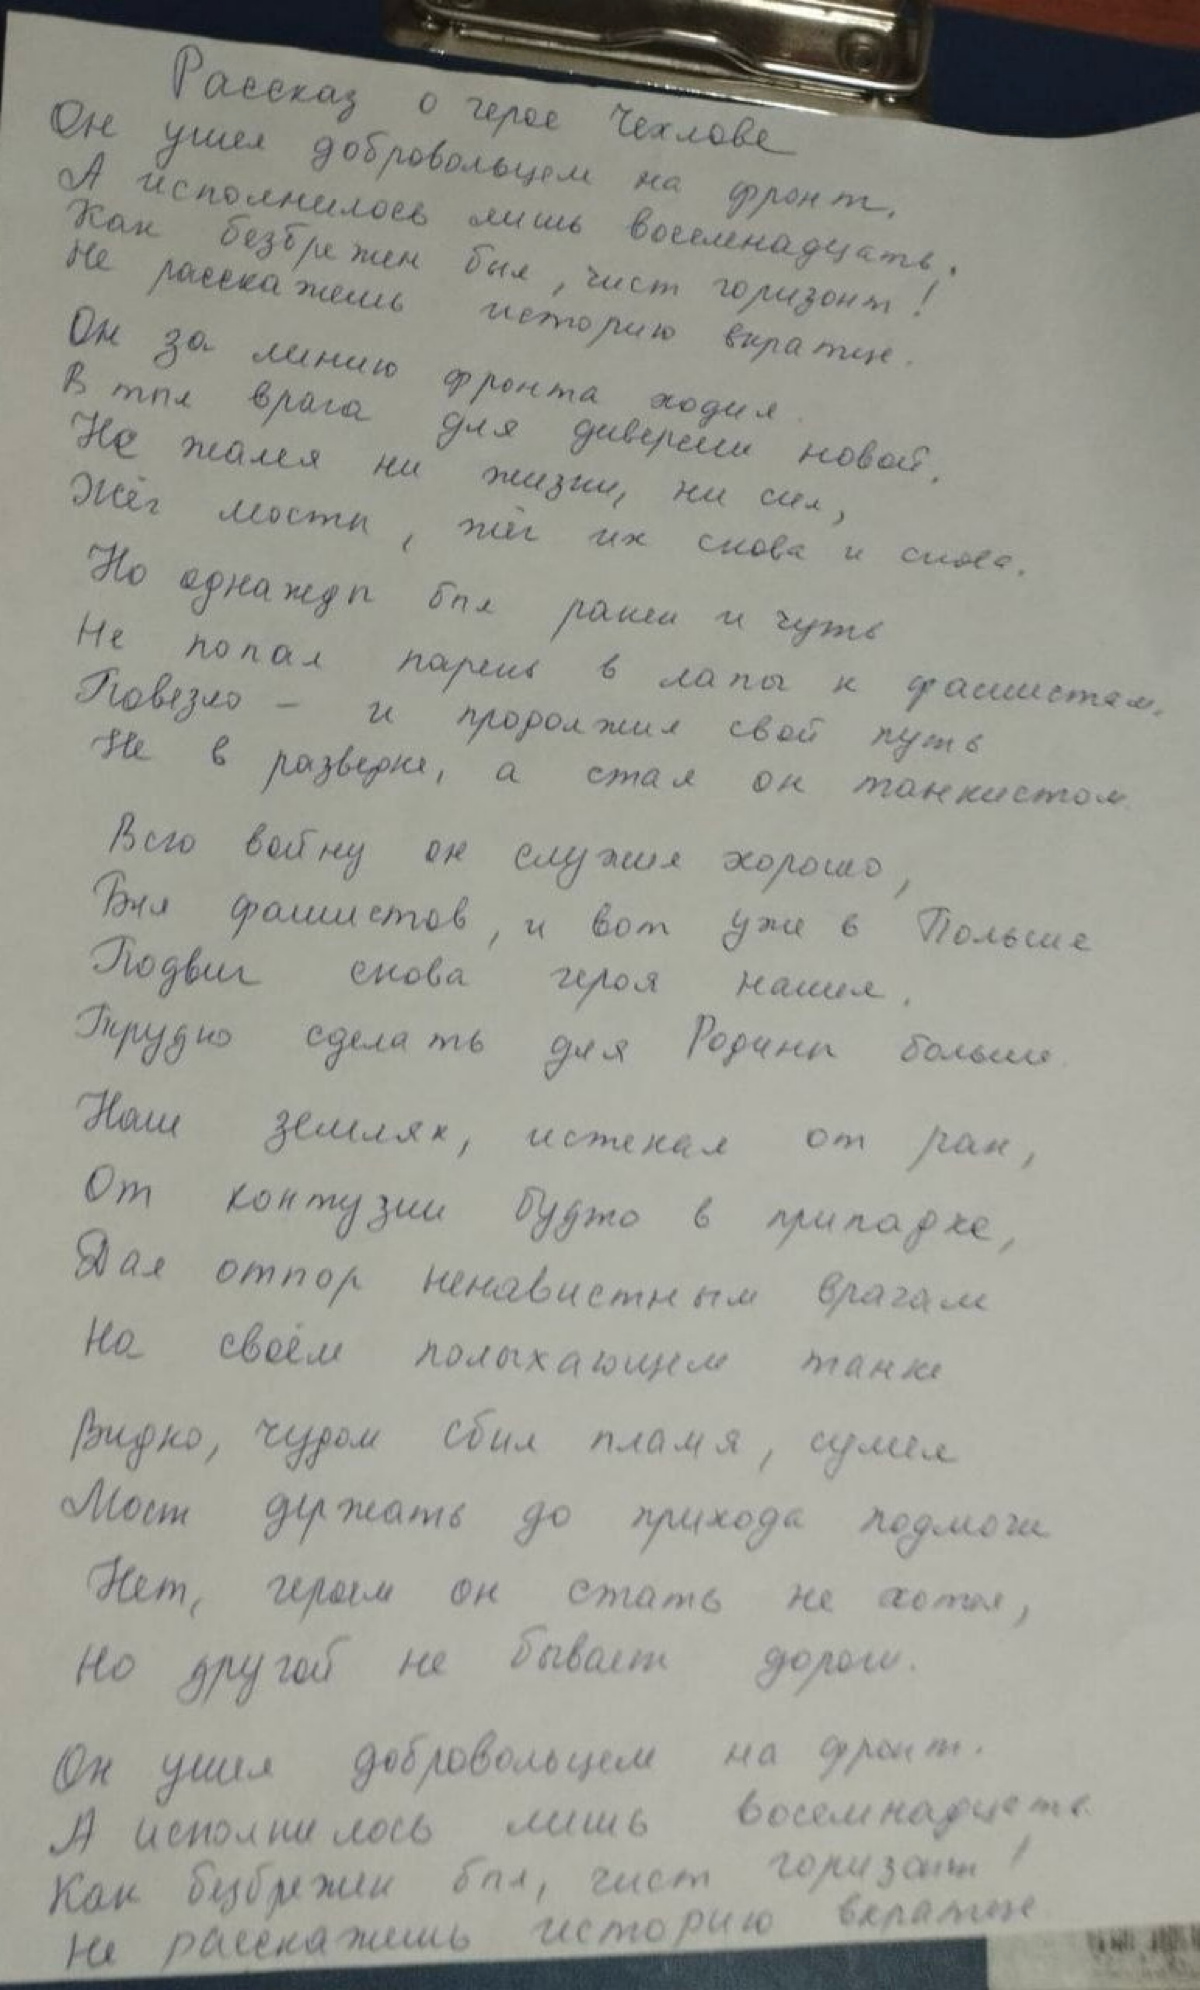 Рассказ о герое Чехлове
Он ушел добровольцем на фронт.
А исполнилось лишь восемнадцать.
Как безбрежен был, чист горизонт!
Не расскажешь историю вкратце.
Он за линию фронта ходил.
В тыл врага для диверсии новой.
Не жалел ни жизни, ни сил,
Жёг мосты, жёг их снова и снова.
Но однажды был ранен и чуть
Не попал парень в лапы к фашистам.
Повезло – и продолжил свой путь
Не в разведке, а стал он танкистом.
Всю войну он служил хорошо,
Бил фашистов, и вот уже в Польше
Подвиг снова героя нашел.
Трудно сделать для Родины больше.
Наш земляк, истекая от ран,
От контузии будто в припадке,
Дал отпор ненавистным врагам
На своём полыхающем танке
Видно, чудом сбил пламя, сумел
Мост держать до прихода подмоги
Нет, героем он стать не хотел,
Но другой не бывает дороги.
Он ушел добровольцем на фронт.
А исполнилось лишь восемнадцать.
Как безбрежен был, чист горизонт!
Не расскажешь историю вкратце